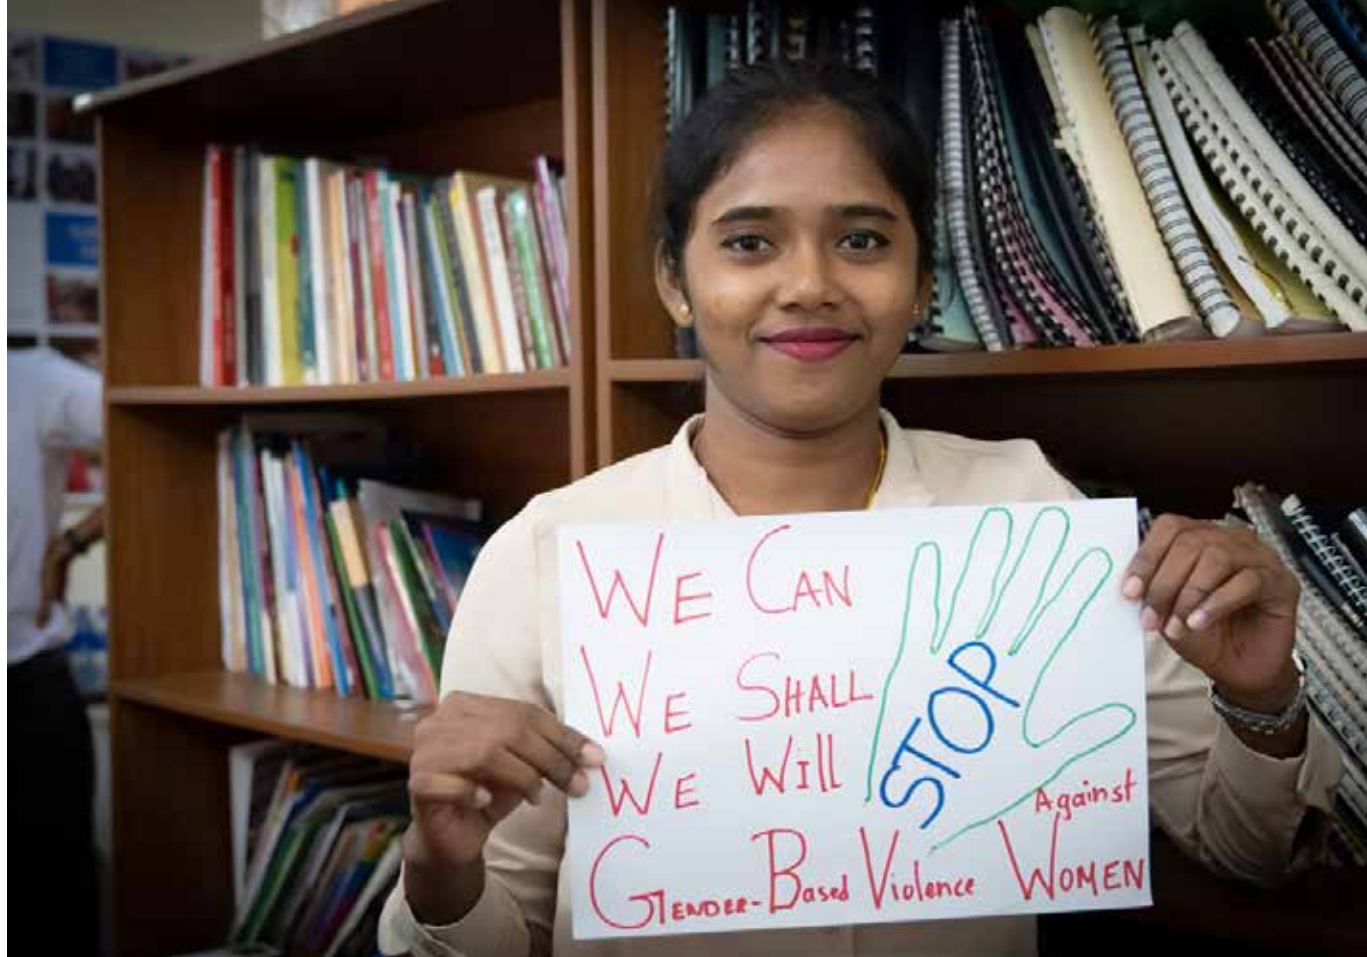 WE CAN
WE SHALL
WE WILL
STOP
GENDER-BASED VIOLENCE Against WOMEN